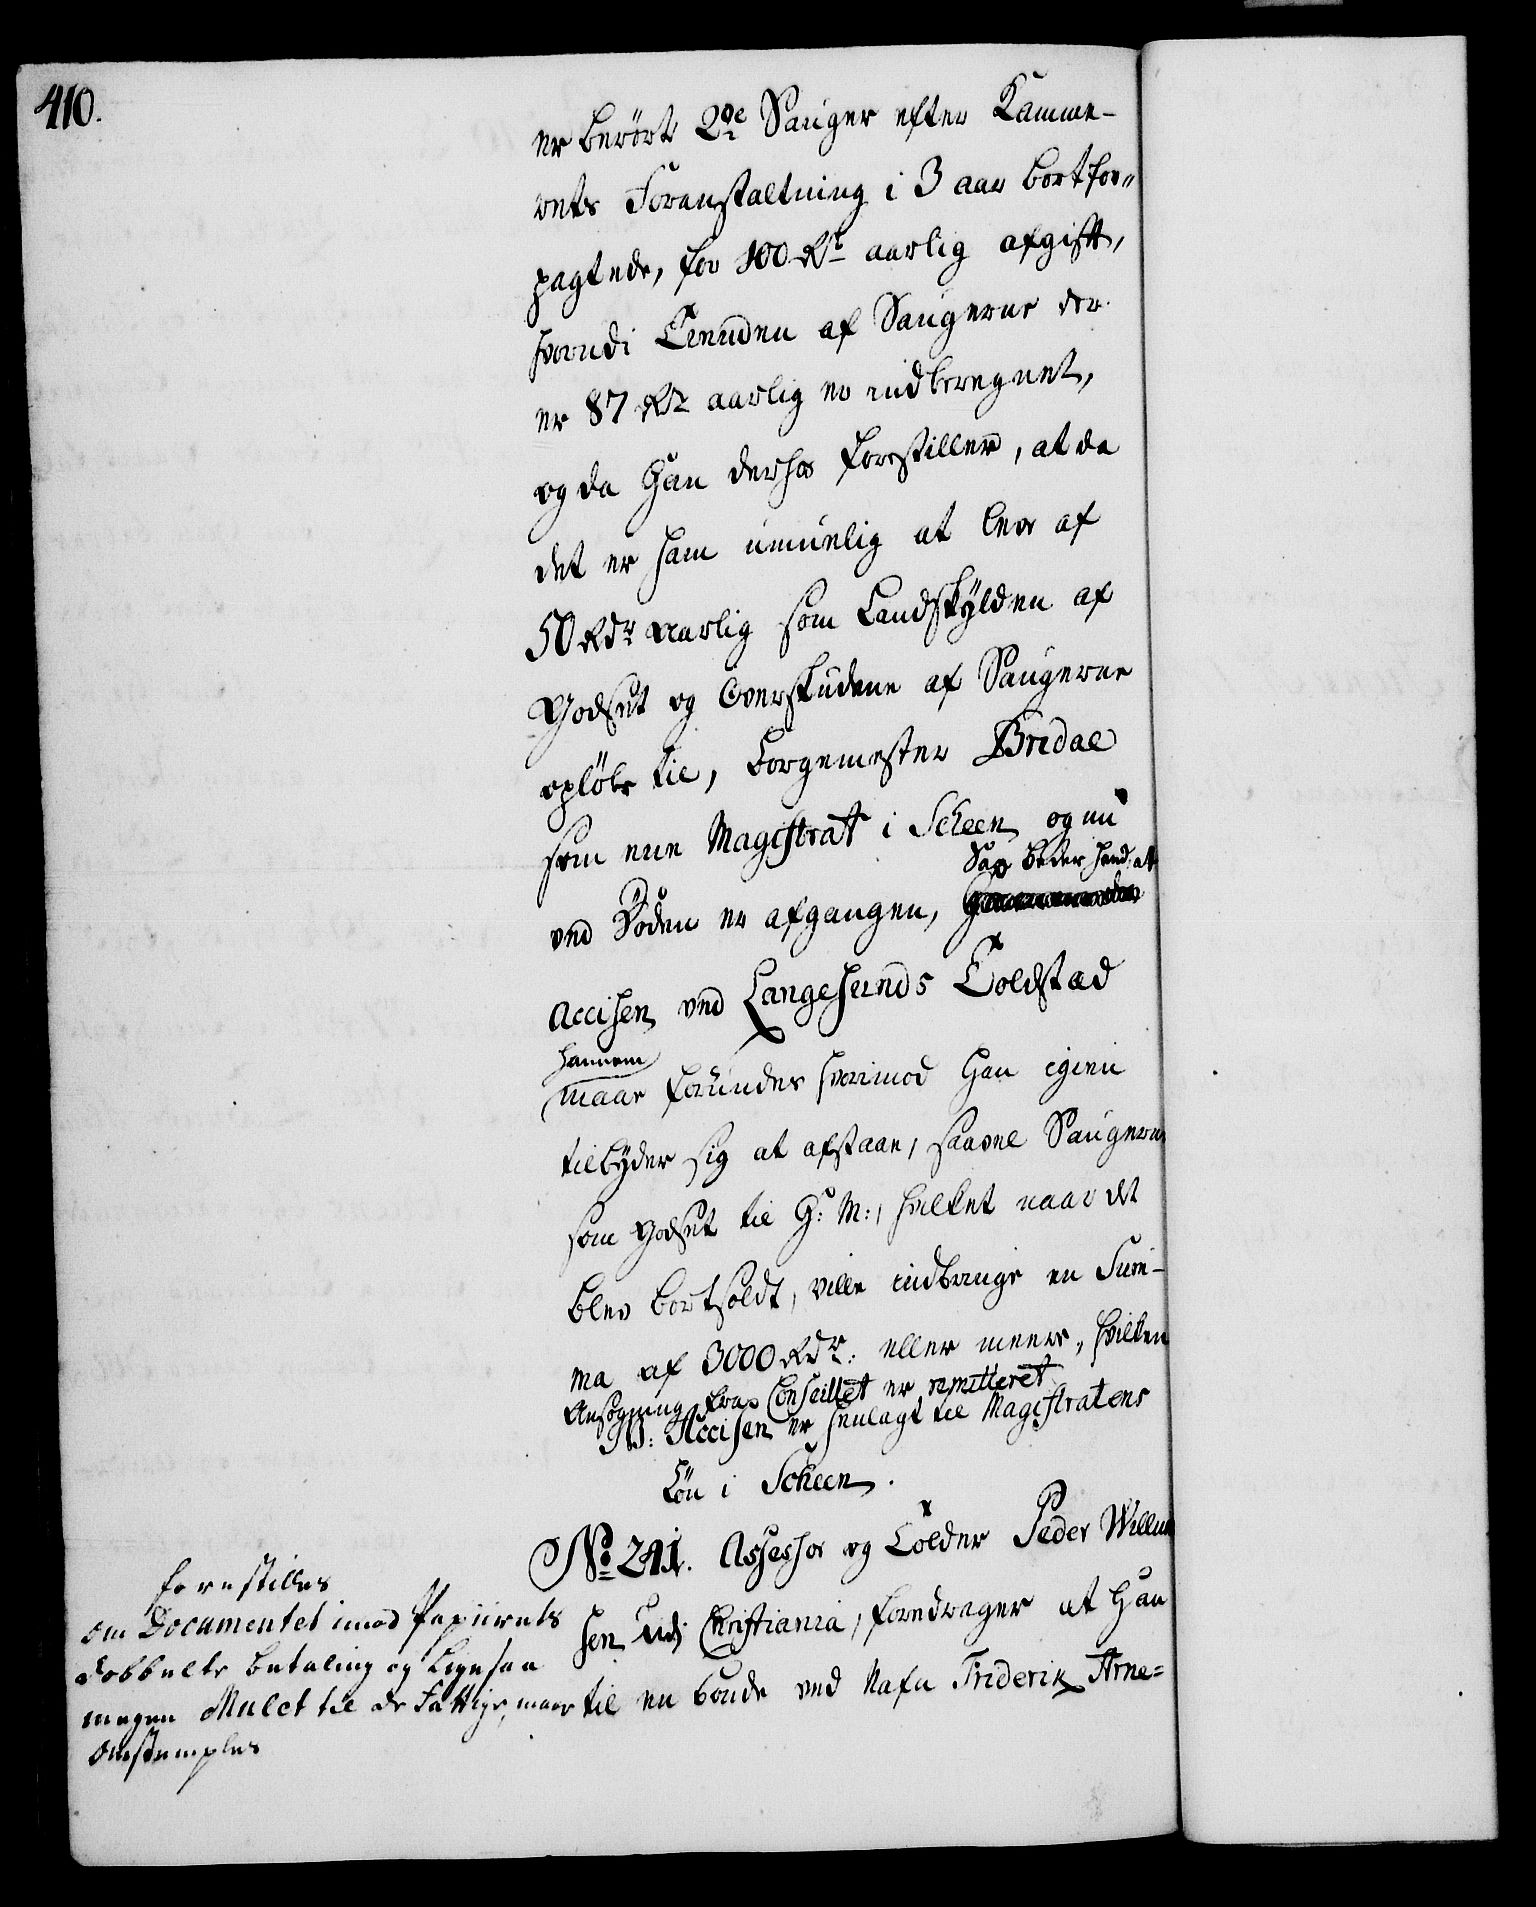 410.
er berørte 2de Sauger efter Kamme-
rets Foranstaltning i 3 aar bortfor„
pagtede, for 100 Rd aarlig afgift,
hvorudi Tienden af Saugerne der
er 87 Rdr aarlig er indberegnet,
og da Han derhos forestiller, at da
det er ham umuelig at leve af
50 Rdr aarlig som Landskylden af
Godset og Overskudene af Saugerne
opløbe til, borgemester Bredal
som eene Magistrat i Scheen og nu
Sax beder hand: at
ved Døden er afgangen,
Accisen ved Langesunds Toldstæd
hannem
maae forundes hvorimod Han igien
tilbyder sig at afstaae, saavel Saugerne
som Godset til H: M:, hvilket naar det
blev bortsoldt, ville indbringe en Sum-
ma af 3000 Rdr: eller meere, hvilken
Ansøgning fra Conseillet er remitteret
NB: Accisen er henlagt til Magistratens
Løn i Scheen.
No 241. Assessor og Tolder Peder Willum
sen udj Christiania, foredrager at Han
til en bonde ved Nafn Friderik Arne=
forestilles
om Documentet imod Papiirets
dobbelte betaling og ligesaa
megen Mulct til de Fattige, maae
omstemples